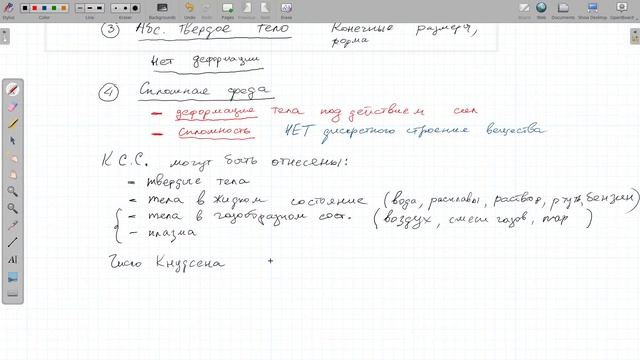 Stylus Color Line Eraser Backgrounds Undo Redo Pages Previous Next Erase Board Web Documents Show Desktop OpenBoard
③ Абс. твердое тело Конечные размеры,
форма
Нет деформации
④ Сплошная среда
– деформацие тела под действием сил
– сплошность НЕТ дискретного строение вещества
К С.С. могут быть отнесены:
– твердые тела
– тела в жидком состояние (вода, расплавы, раствор, ртуть, бензин)
– тела в газообразном сост. (воздух, смеси газов, пар)
– плазма
Число Кнудсена